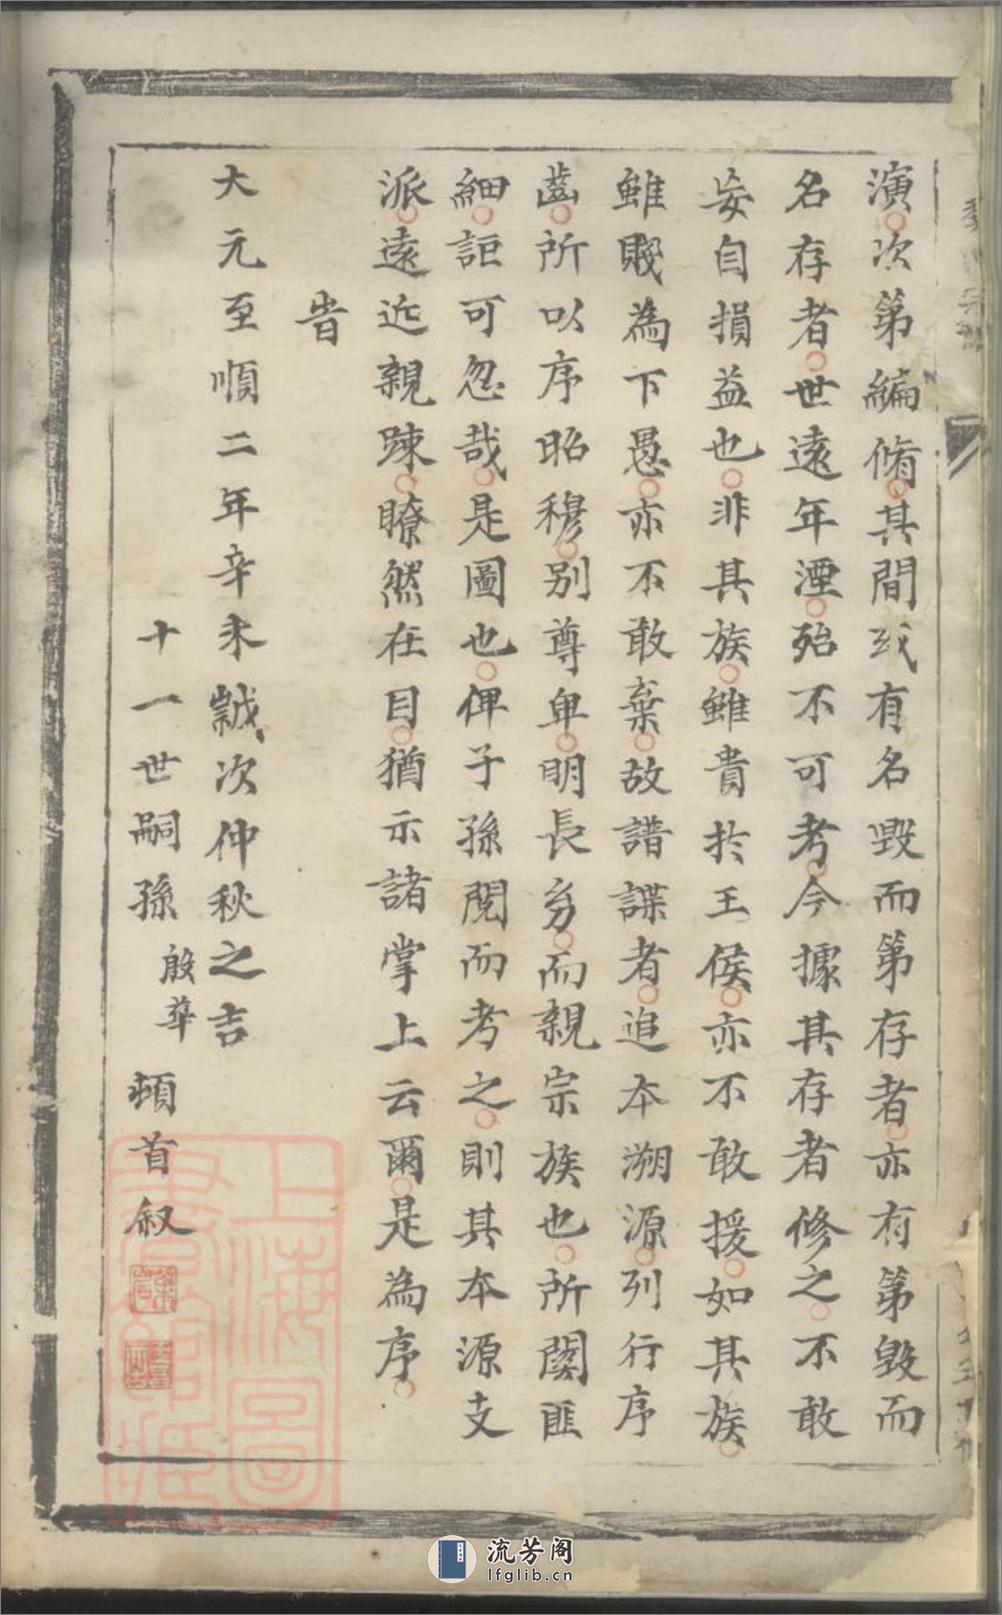 演次第編脩其間或有名毀而第存者亦有第毀而
名存者世遠年湮殆不可考今據其存者修之不敢
妄自損益也非其族雖貴於王侯亦不敢援如其族
雖賤為下愚亦不敢棄故譜諜者追本溯源列行序
齒所以序昭穆別尊卑明長㓜而親宗族也所關匪
細詎可忽哉是圖也俾子孫閱而考之則其本源支
派遠近親踈瞭然在目猶示諸掌上云爾是為序
旹
大元至順二年辛未歲次仲秋之吉
十一世嗣孫 殷華 頓首叙
上海圖書館藏
流芳阁
lfglib.cn